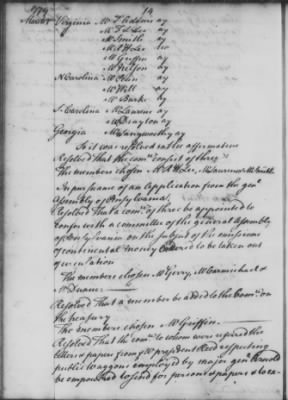 1779 14
March Virginia Mr T Adams ay
Mr F L Lee ay
Mr Smith ay
Mr R H Lee
Mr Griffin ay
Mr Nelson ay
N Carolina Mr Penn ay
Mr Hill ay
Mr Burke ay
S. Carolina Mr Laurens ay
Mr Drayton ay
Georgia Mr Langworthy ay
So it was resolved in the affirmative
Resolved That the comee consist of three
The members chosen Mr Laurens Mr Smith
In pursuance of an Application from the genl
Assembly of Pensylvania
Resolved That a comee of three be appointed to
confer with a committee of the general Assembly
of Pensylvania on the subject of the emissions
of continental money ordered to be taken out
of circulation
The members chosen Mr Gerry, Mr Carmichael &
Mr Duane
Resolved That a member be added to the Comee on
the treasury
The members chosen Mr Griffin
Resolved That the comee to whom were referred the
letter & papers from Mr president Reed respecting
public waggons employed by major genl Arnold
be empowered to send for persons & papers &